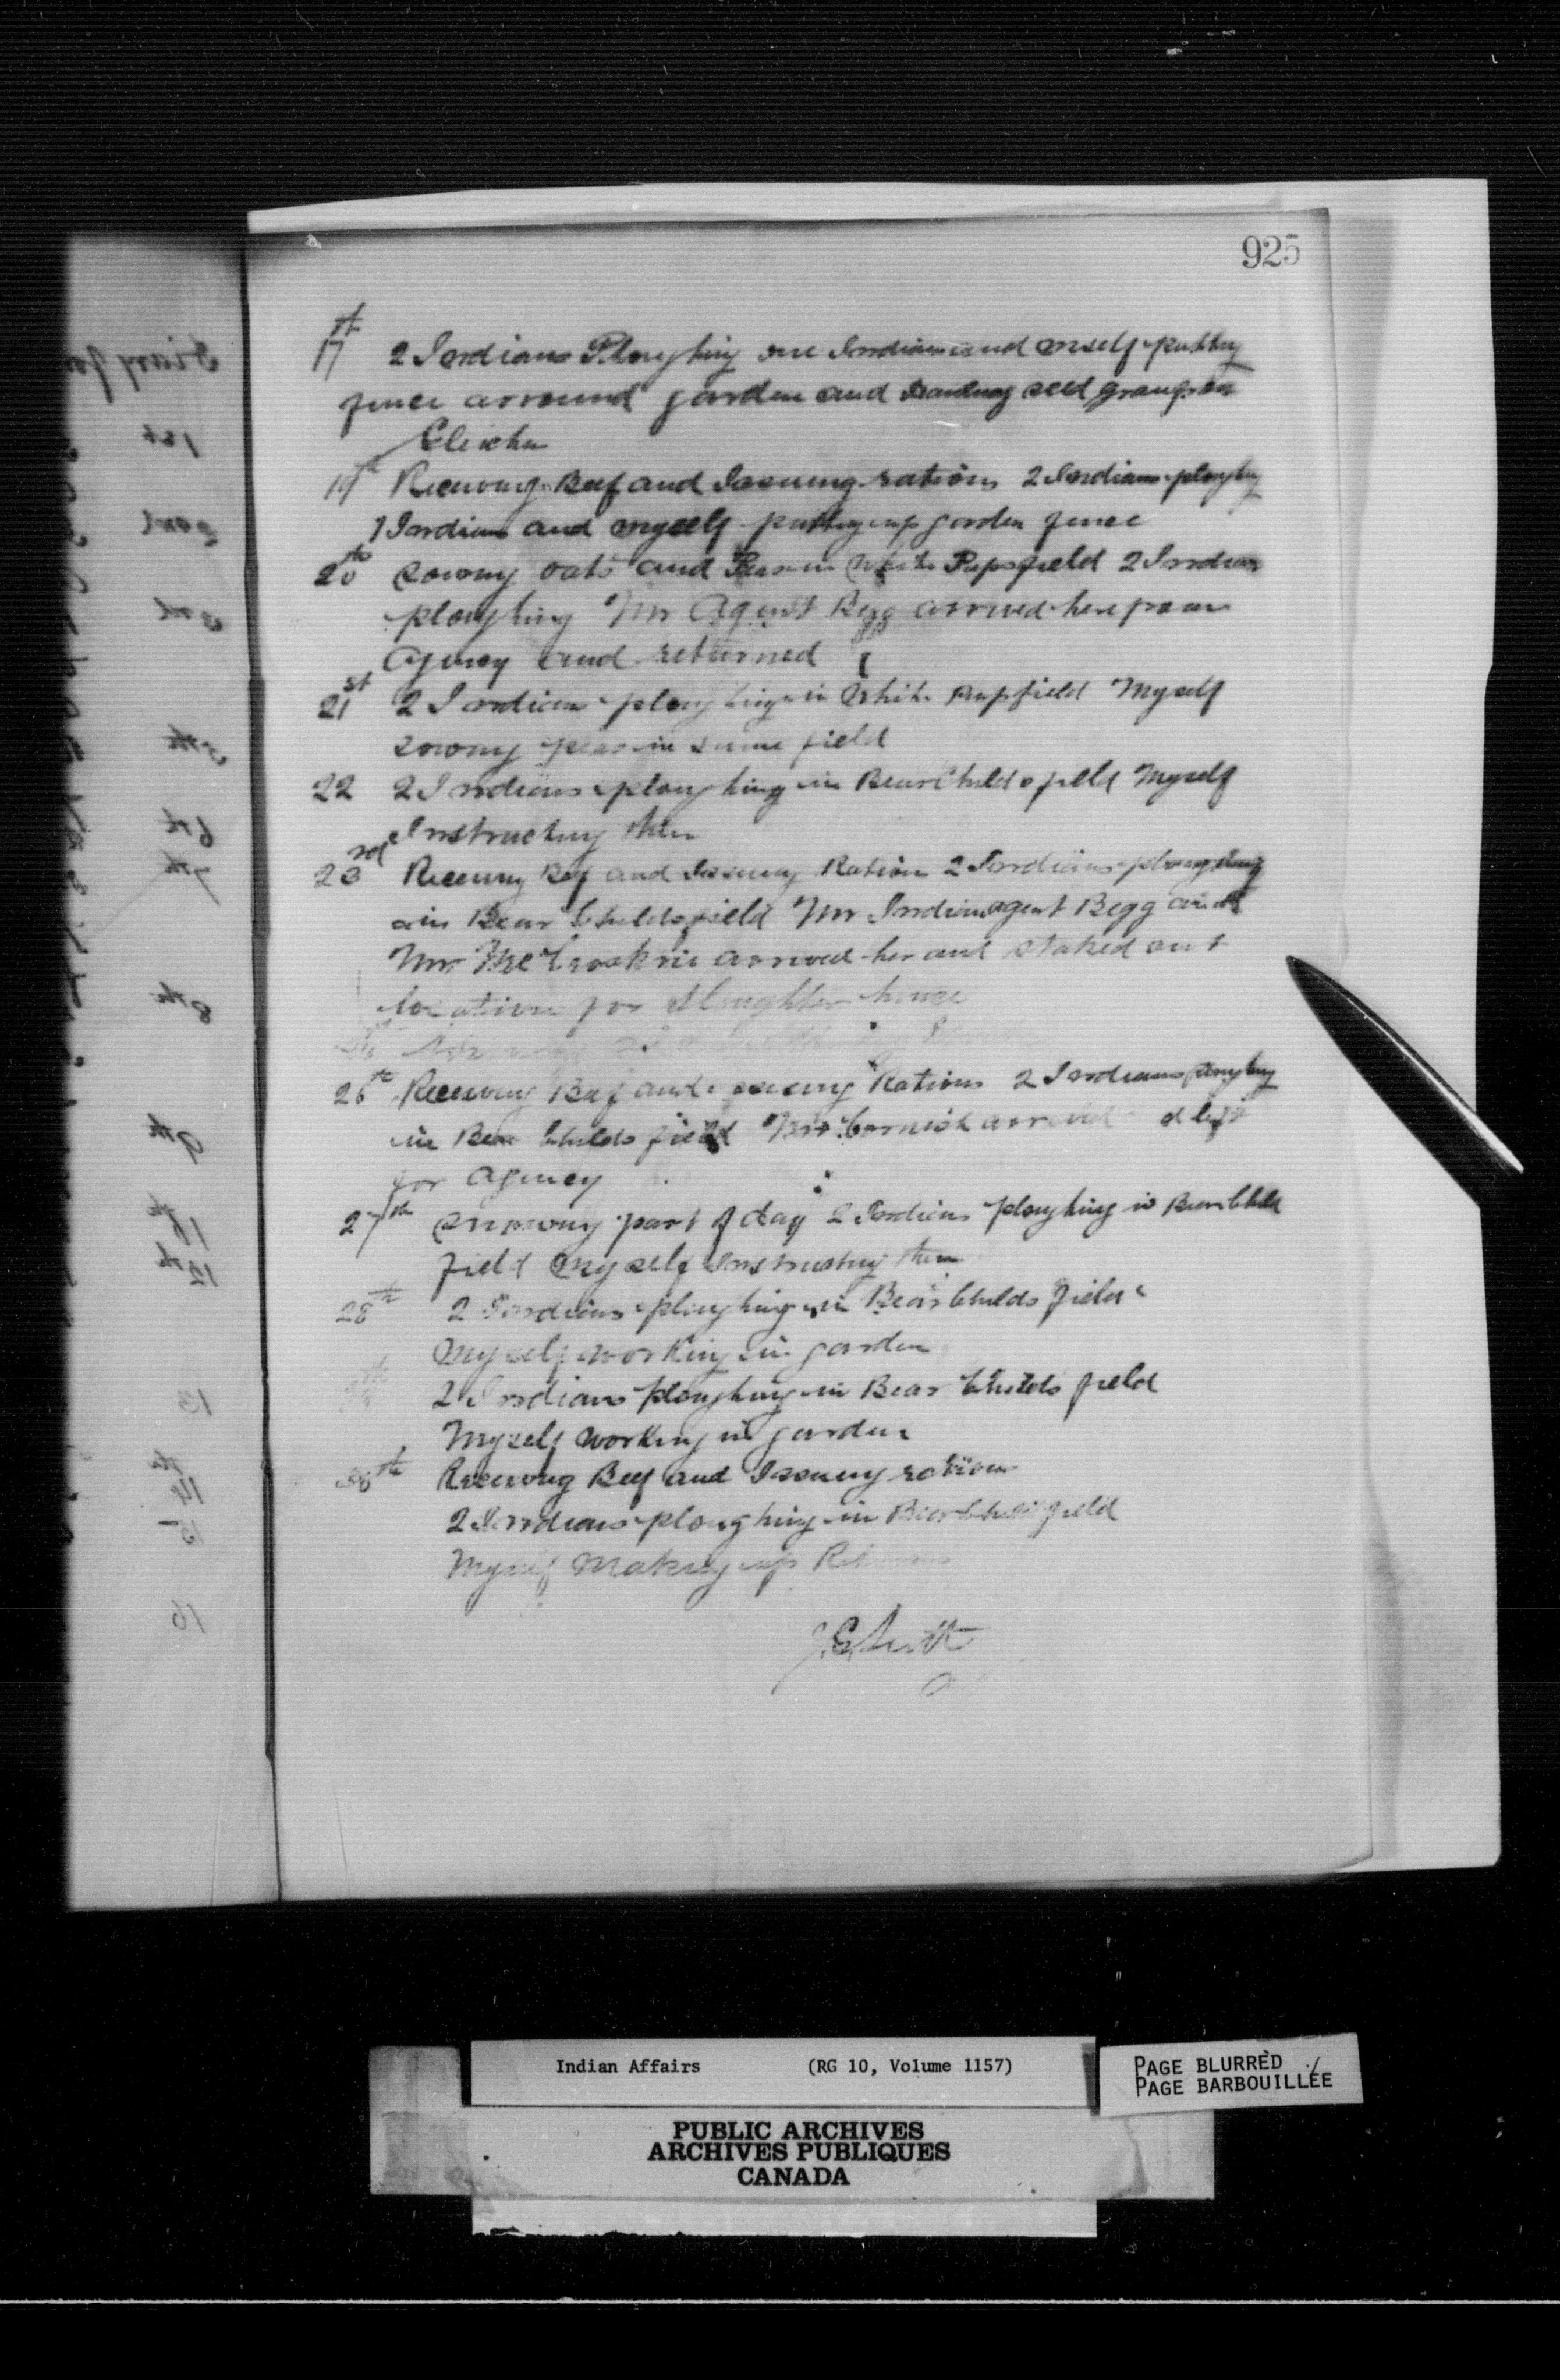 925
17th 2 Indians Ploughing one Indian and mself putting
fence arround garden and hauling seed grain from
Gleichen
19th Receiving Beef and Issuing rations 2 Indians ploughing
1 Indian and myself putting up garden fence
20th sowing oats and Peas in White Pups field 2 Indians
ploughing Mr Agent Begg arrived here from
Agency and returned
21st 2 Indians ploughing in White Pup field Myself
sowing peas in same field
22 2 Indians ploughing in Bear Childs field Myself
Instructing them
23rd Receiving Beef and Issuing Rations 2 Indians ploughing
in Bear Childs field Mr Indian agent Begg and
Mr arrived her and staked out
location for Slaughter house
26th Receiving Beef and issuing Rations 2 Indians ploughing
in Bear Childs field Mr Cornish arrived left
for Agency
27th snowing part of day 2 Indians ploughing in Bear Child
field Myself Instructing them
28th 2 Indians ploughing in Bear Childs field
Myself working in garden
2 Indians ploughing in Bear Childs field
Myself working in garden
30th Receiving Beef and Issuing rations
2 Indians ploughing in Bear Childs field
Myself Making up Returns
Indian Affairs (RG 10, Volume 1157)
PAGE BLURRED
PAGE BARBOUILLÉE
PUBLIC ARCHIVES
ARCHIVES PUBLIQUES
CANADA